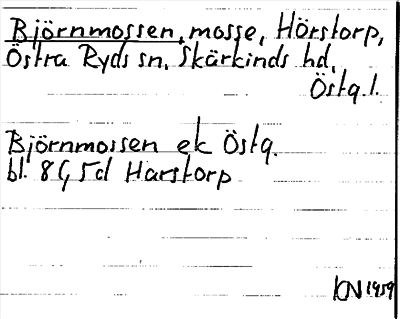 Björnmossen, mosse, Hörstorp,
Östra Ryds sn, Skärkinds hd,
Östg. l.
Björnmossen ek Östg.
bl. 8f, 5d Harstorp
KN 1959